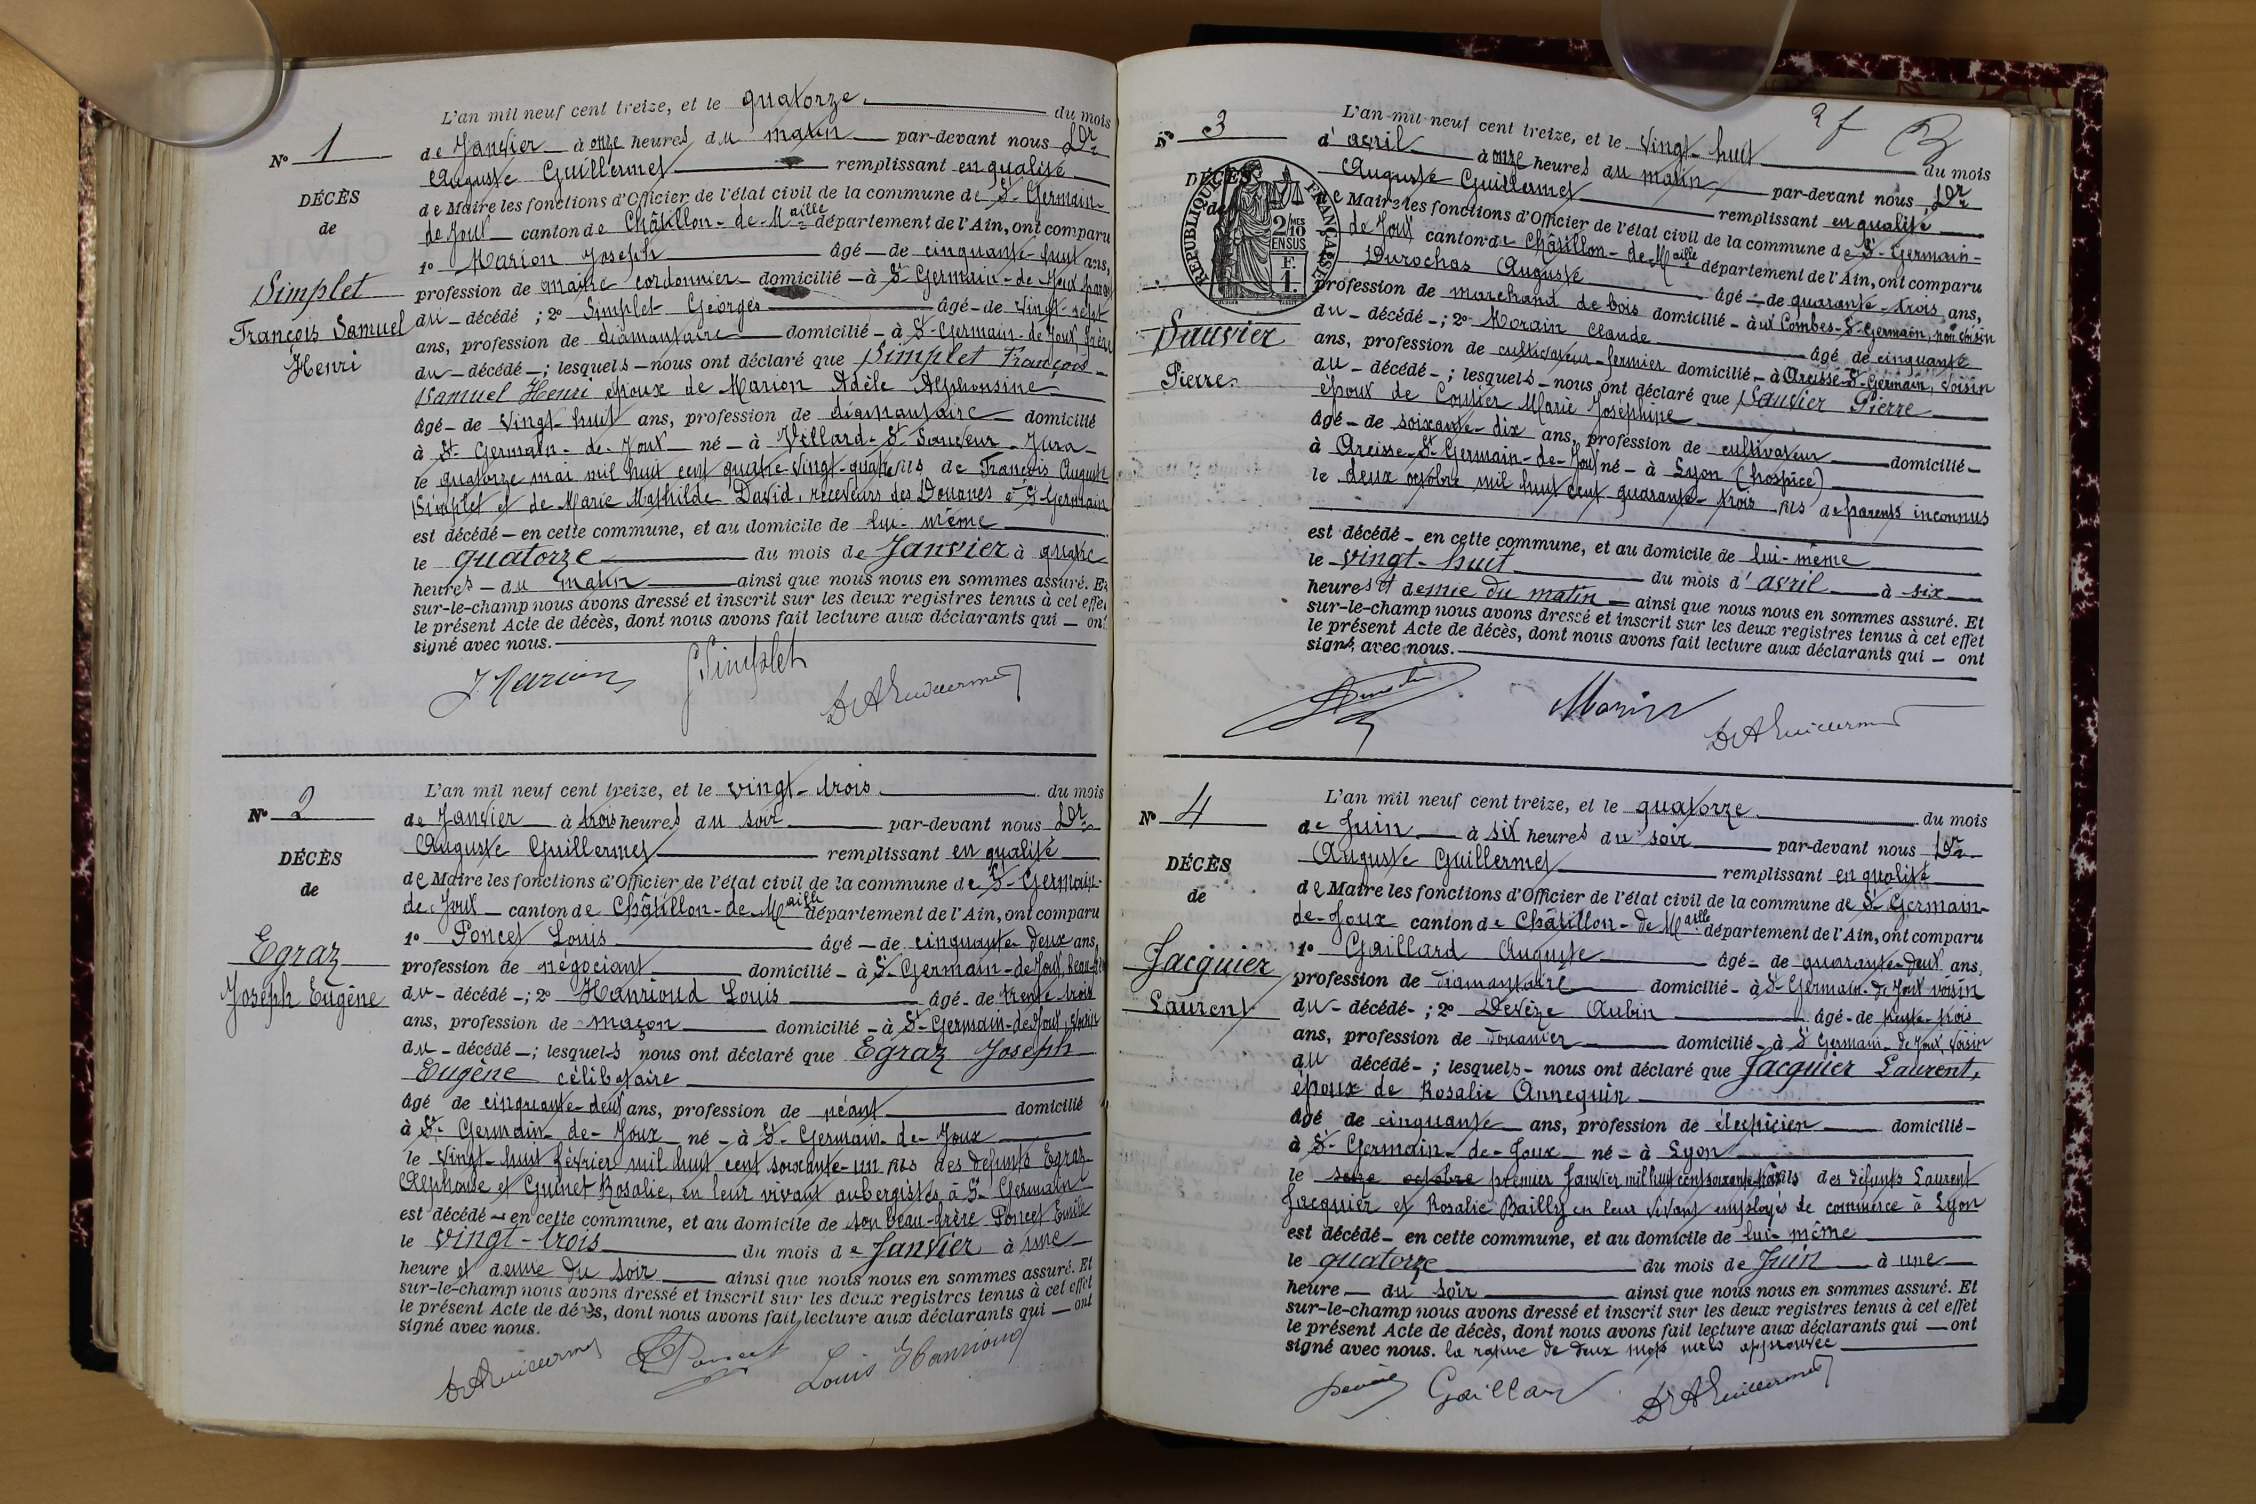 L'an mil neuf cent treize, et le quatorze du mois
N° 1
de Janvier à onze heures du matin par-devant nous Dr
Auguste Guillermet remplissant en qualité
DÉCÈS
de Maire les fonctions d'Officier de l'état civil de la commune de St-Germain-
de
de Joux canton de Châtillon-de-Maille département de l'Ain, ont comparu
1° Marion Joseph âgé de cinquante-huit ans,
profession de maître cordonnier domicilié à St Germain-de-Joux
Simplet
François Samuel
Henri
du décédé ; 2° Simplet Georges âgé de vingt-sept
ans, profession de diamantaire domicilié à St-Germain-de-Joux, frère
du décédé ; lesquels nous ont déclaré que Simplet François
Samuel Henri époux de Marion Adèle Alphonsine
âgé de vingt-huit ans, profession de diamantaire domicilié
à St-Germain-de-Joux né à Villard-St-Sauveur-Jura
le quatorze mai mil huit cent quatre-vingt-quatre fils de François Auguste
Simplet et de Marie Mathilde David, receveurs des Douanes à St-Germain
est décédé en cette commune, et au domicile de lui-même
le quatorze du mois de Janvier à quatre
heures du matin ainsi que nous nous en sommes assuré. Et
sur-le-champ nous avons dressé et inscrit sur les deux registres tenus à cet effet
le présent Acte de décès, dont nous avons fait lecture aux déclarants qui ont
signé avec nous.
J Marion G Simplet Dr A Guillermet
L'an mil neuf cent treize, et le vingt-trois du mois
N° 2
de Janvier à trois heures du soir par-devant nous Dr
Auguste Guillermet remplissant en qualité
DÉCÈS
de Maire les fonctions d'Officier de l'état civil de la commune de St-Germain-
de
de Joux canton de Châtillon-de-Maille département de l'Ain, ont comparu
1° Poncet Louis âgé de cinquante-deux ans,
Egraz
Joseph Eugène
profession de négociant domicilié à St-Germain-de-Joux, beau-frère
du décédé ; 2° Hanrioud Louis âgé de trente trois
ans, profession de maçon domicilié à St-Germain-de-Joux, voisin
du décédé ; lesquels nous ont déclaré que Egraz Joseph
Eugène célibataire
âgé de cinquante-deux ans, profession de néant domicilié
à St-Germain-de-Joux né à St-Germain-de-Joux
le vingt-huit février mil huit cent soixante-un fils des défunts Egraz
Alphonse et Guinet Rosalie, en leur vivant aubergistes à St-Germain
est décédé en cette commune, et au domicile de son beau-frère Poncet Emile
le vingt-trois du mois de Janvier à une
heure et demie du soir ainsi que nous nous en sommes assuré. Et
sur-le-champ nous avons dressé et inscrit sur les deux registres tenus à cet effet
le présent Acte de décès, dont nous avons fait lecture aux déclarants qui ont
signé avec nous.
Dr A Guillermet L Poncet Louis Hanrioud
2 f
L'an mil neuf cent treize, et le vingt-huit du mois
N° 3
d'avril à onze heures du matin par-devant nous Dr
Auguste Guillermet remplissant en qualité
DÉCÈS
de
RÉPUBLIQUE FRANÇAISE
2/10 MES
EN SUS
F.
1.
de Maire les fonctions d'Officier de l'état civil de la commune de St-Germain-
de Joux canton de Châtillon-de-Maille département de l'Ain, ont comparu
Durochas Auguste âgé de quarante-trois ans,
profession de marchand de bois domicilié aux Combes-St-Germain, non voisin
Sauvier
Pierre
du décédé ; 2° Morain Claude âgé de cinquante
ans, profession de cultivateur-fermier domicilié à Areisse-St-Germain, voisin
du décédé ; lesquels nous ont déclaré que Sauvier Pierre
époux de Coutier Marie Joséphine
âgé de soixante-dix ans, profession de cultivateur domicilié
à Areisse-St-Germain-de-Joux né à Lyon (hospice)
le deux octobre mil huit cent quarante-trois fils de parents inconnus
est décédé en cette commune, et au domicile de lui-même
le vingt-huit du mois d'avril à six
heures et demie du matin ainsi que nous nous en sommes assuré. Et
sur-le-champ nous avons dressé et inscrit sur les deux registres tenus à cet effet
le présent Acte de décès, dont nous avons fait lecture aux déclarants qui ont
signé avec nous.
Dr A Guillermet
L'an mil neuf cent treize, et le quatorze du mois
N° 4
de Juin à six heures du soir par-devant nous Dr
Auguste Guillermet remplissant en qualité
DÉCÈS
de
de Maire les fonctions d'Officier de l'état civil de la commune de St-Germain-
de-Joux canton de Châtillon-de-Maille département de l'Ain, ont comparu
Jacquier
Laurent
1° Gaillard Auguste âgé de quarante-deux ans,
profession de diamantaire domicilié à St Germain-de Joux voisin
du décédé ; 2° Devèze Aubin âgé de trente-trois
ans, profession de douanier domicilié à St Germain-de Joux, voisin
du décédé ; lesquels nous ont déclaré que Jacquier Laurent,
époux de Rosalie Annequin
âgé de cinquante ans, profession de électricien domicilié
à St-Germain-de-Joux né à Lyon
le seize octobre premier Janvier mil huit cent soixante-trois fils des défunts Laurent
Jacquier et Rosalie Bailly en leur vivant employés de commerce à Lyon
est décédé en cette commune, et au domicile de lui-même
le quatorze du mois de Juin à une
heure du soir ainsi que nous nous en sommes assuré. Et
sur-le-champ nous avons dressé et inscrit sur les deux registres tenus à cet effet
le présent Acte de décès, dont nous avons fait lecture aux déclarants qui ont
signé avec nous. la rature de deux mots nuls approuvée
Devèze Gaillard Dr A Guillermet